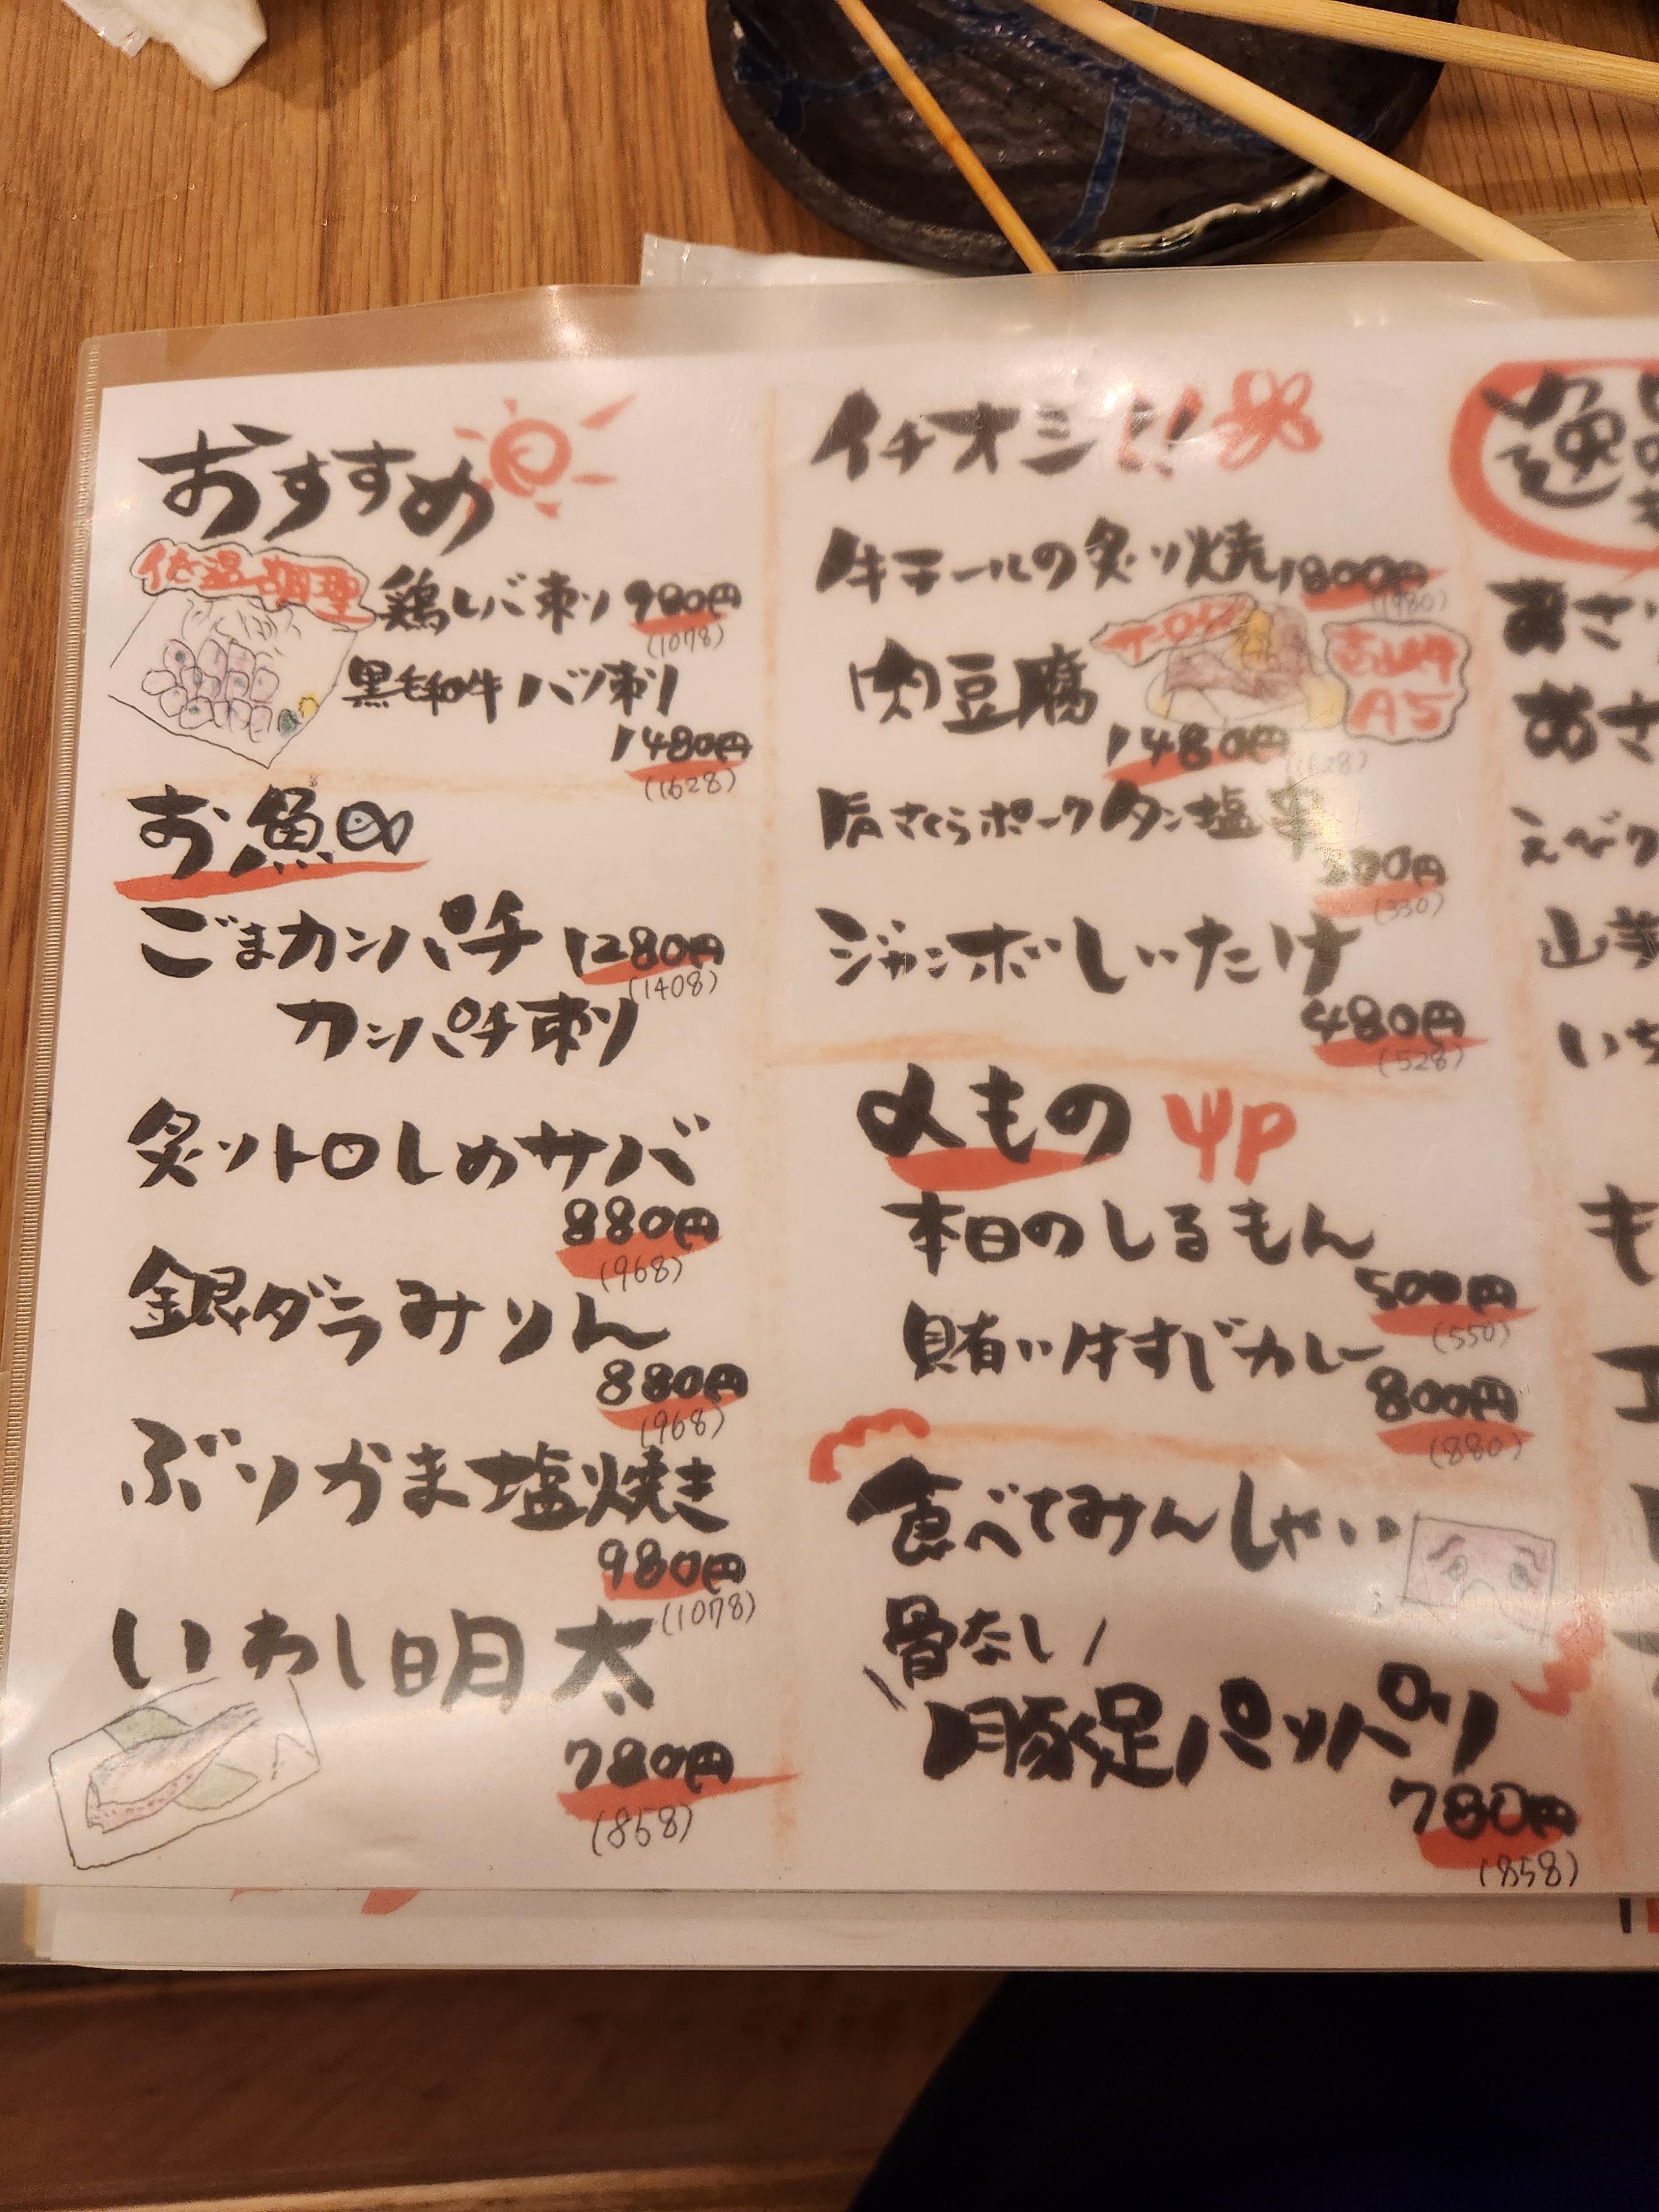 おすすめ
低温調理
鶏レバ刺し 980円
(1078)
黒毛和牛ハツ刺し
1480円
(1628)
お魚
ごまカンパチ 1280円
(1408)
カンパチ刺し
炙りトロしめサバ
880円
(968)
銀ダラみりん
880円
(968)
ぶりかま塩焼き
980円
(1078)
いわし明太
780円
(858)
イチオシ!!
牛テールの炙り焼 1800円
(1980)
肉豆腐
A5
1480円
(1628)
さくらポークタン塩串
300円
(330)
ジャンボしいたけ
480円
(528)
〆もの
本日のしるもん
500円
(550)
賄い牛すじカレー
800円
(880)
食べてみんしゃい
骨なし
豚足パリパリ
780円
(858)
逸品
あさ
あさ
えび
山芋
いち
も